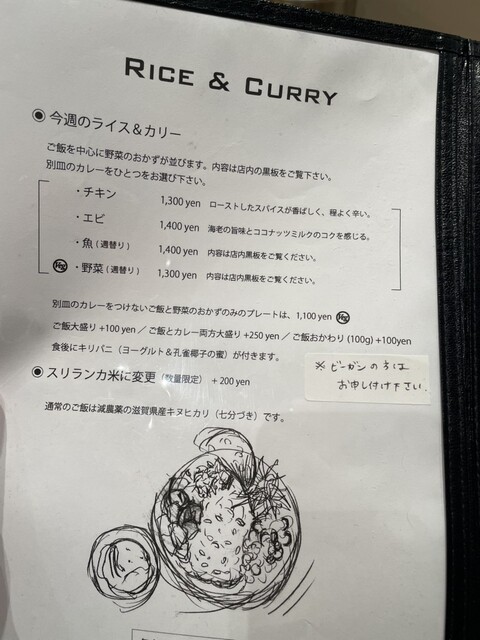 RICE & CURRY
◉ 今週のライス＆カリー
ご飯を中心に野菜のおかずが並びます。内容は店内の黒板をご覧下さい。
別皿のカレーをひとつをお選び下さい。
・チキン 1,300 yen ローストしたスパイスが香ばしく、程よく辛い。
・エビ 1,400 yen 海老の旨味とココナッツミルクのコクを感じる。
・魚 (週替り) 1,400 yen 内容は店内黒板をご覧ください。
・野菜 (週替り) 1,300 yen 内容は店内黒板をご覧ください。
別皿のカレーをつけないご飯と野菜のおかずのみのプレートは、1,100 yen
ご飯大盛り +100 yen ／ ご飯とカレー両方大盛り +250 yen ／ ご飯おかわり (100g) +100yen
食後にキリパニ（ヨーグルト＆孔雀椰子の蜜）が付きます。
※ ビーガンの方は
お申し付け下さい
◉ スリランカ米に変更（数量限定） + 200 yen
通常のご飯は減農薬の滋賀県産キヌヒカリ（七分づき）です。